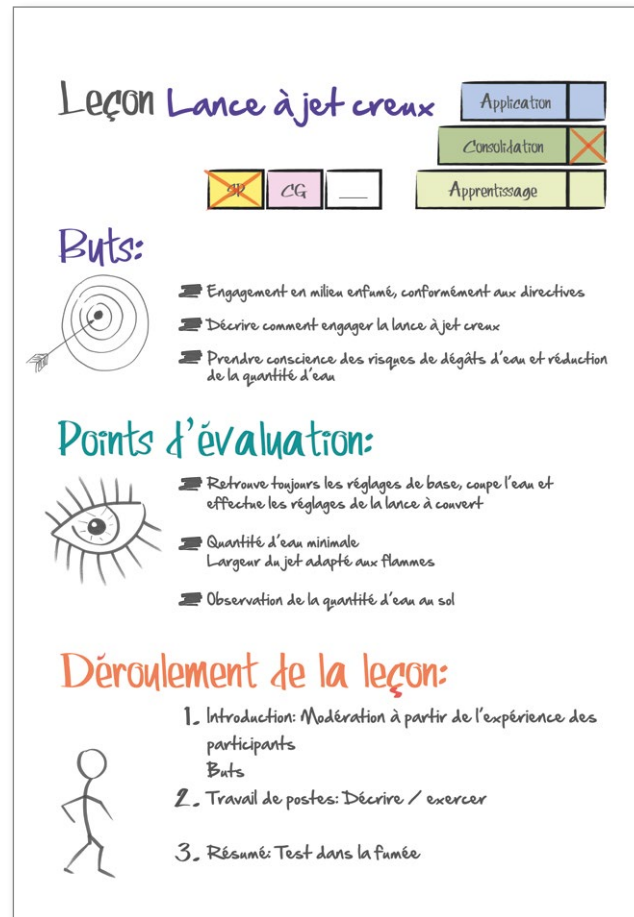 Leçon Lance à jet creux
Application
Consolidation
SP CG
Apprentissage
Buts:
Engagement en milieu enfumé, conformément aux directives
Décrire comment engager la lance à jet creux
Prendre conscience des risques de dégâts d'eau et réduction
de la quantité d'eau
Points d'évaluation:
Retrouve toujours les réglages de base, coupe l'eau et
effectue les réglages de la lance à couvert
Quantité d'eau minimale
Largeur du jet adapté aux flammes
Observation de la quantité d'eau au sol
Déroulement de la leçon:
1. Introduction: Modération à partir de l'expérience des
participants
Buts
2. Travail de postes: Décrire / exercer
3. Résumé: Test dans la fumée